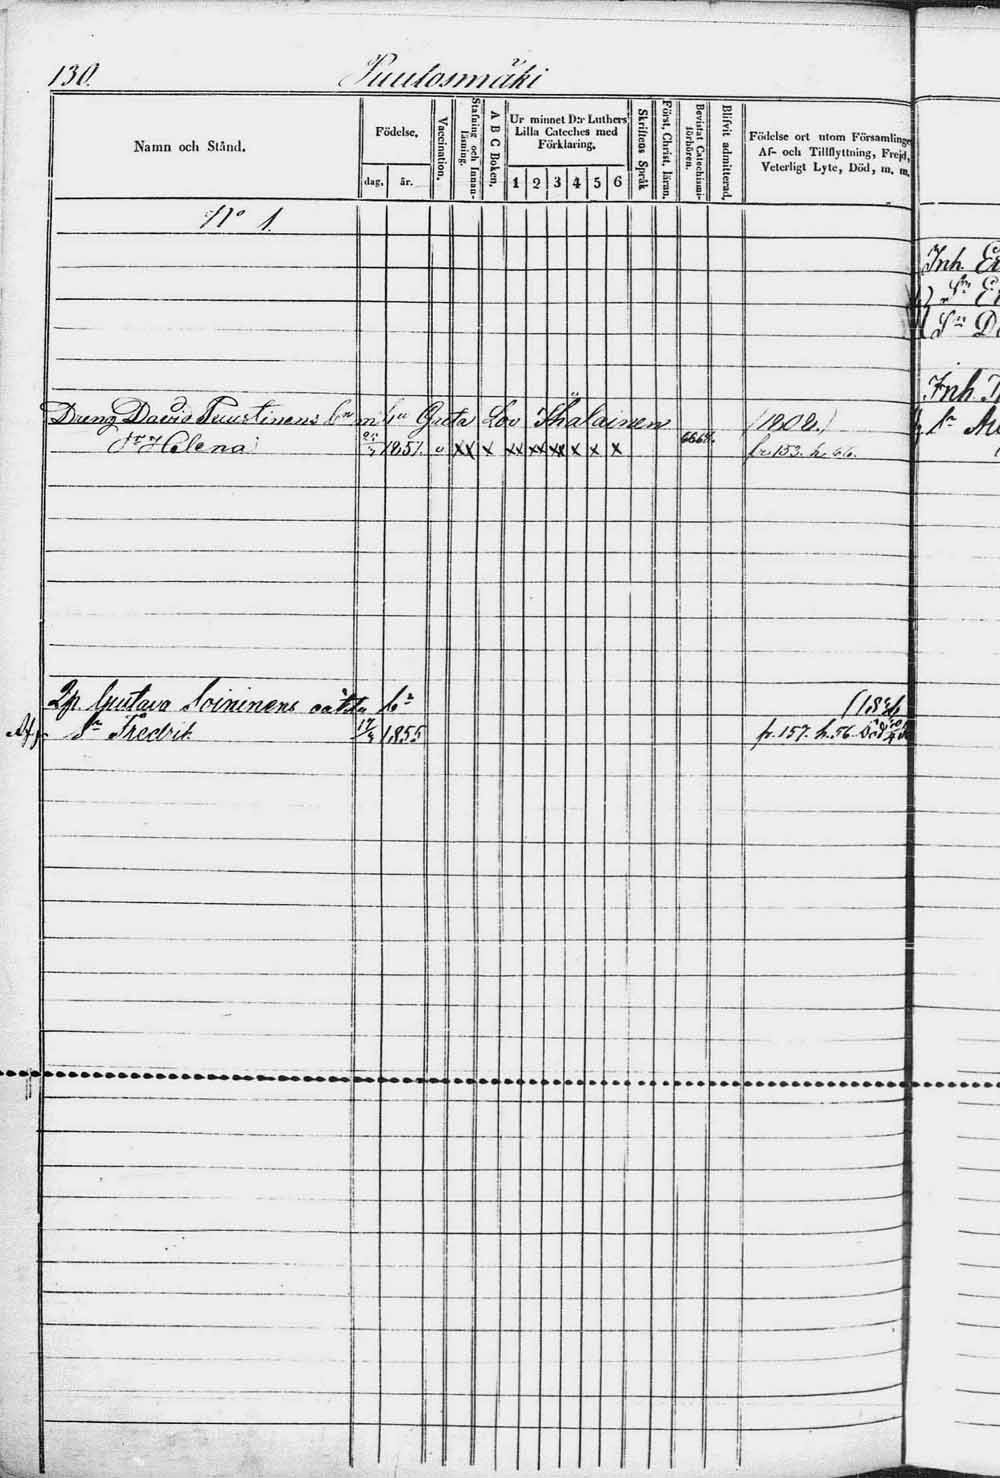 130. Puutosmäki
Namn och Stånd.
Födelse,
dag. år.
Vaccination.
Stafning och Innan-läsning.
A B C Boken.
Ur minnet D:r Luthers
Lilla Cateches med
Förklaring.
1 2 3 4 5 6
Skriftens Språk
Först. Christ. läran.
Bevistat Catechismi-förhören.
Blifvit admitterad.
Födelse ort utom Församlinge
Af- och Tillflyttning, Frejd,
Veterligt Lyte, Död, m. m.
No 1.
Inh.
Inh.
Dreng David Puustinens m Greta Lov
Helena 1851. v xx x xx xx xx x x x fr. 153. h. 66.
Gustava Soininens
Fredrik 17/3 1855 fr. 157. h. 56. Död